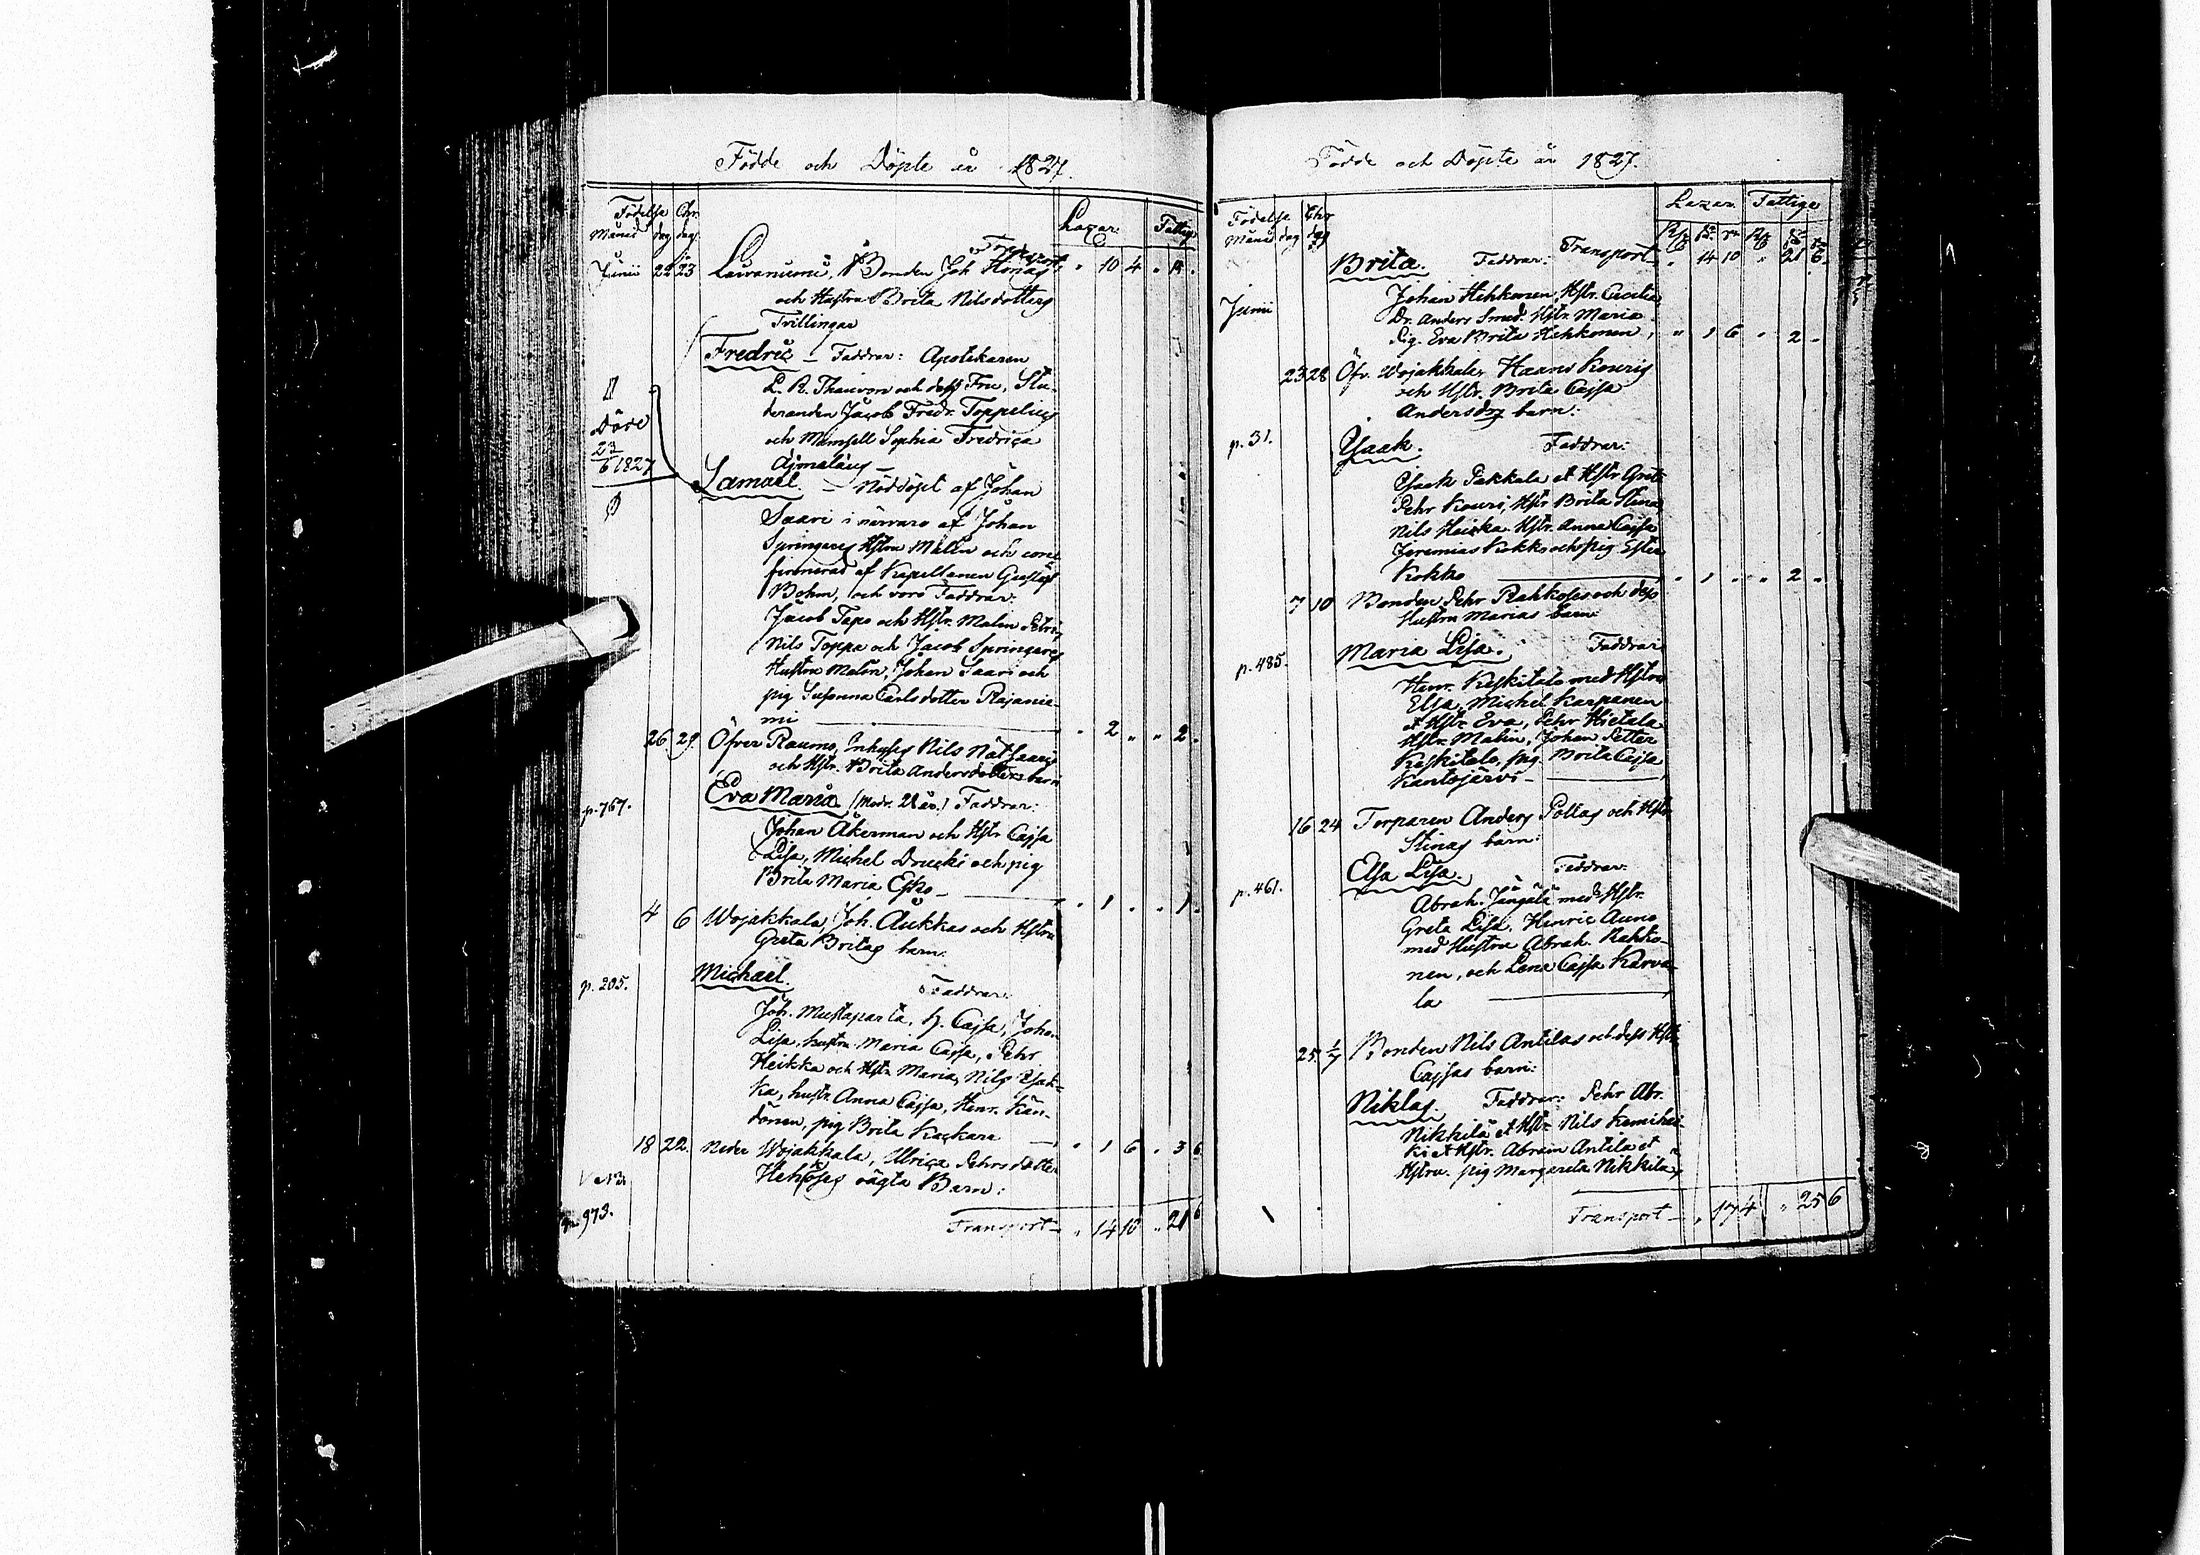 Födde och Döpte år 1827.
Födelse Chr.
Månad dag dag
Lazar. Fattig
Transport
Junii 22 23 Laivaniemi, Bonden Joh " 10 4 "
och Hustru Brita Nilsdotters
Tvillingar
Fredric – Faddrar: Apotikaren
L. R. Thauvon och dess Fru, Stu-
deranden Jacob Fredr. Toppelius
och Mamsell Sophia Fredrica
Döde
23/6 1827
Samuel. – Nöddöpt af Johan
Saari i närvaro af Johan
Springares Hstru Malin och con-
firmerad af Kapellanen Gustaf
Bohm, och voro Faddrar:
Jacob Tapo och Hstr. Malin
Nils Toppa och Jacob Springares
Hustru Malin, Johan Saari och
pig Susanna Carlsdotter Rajanie-
mi " 2 " " 2 "
26 29 Öfver Raumo, Inhyses Nils
och Hstr. Brita Andersdotters barn
p. 767. Eva Maria (Modr. 28 år.) Faddrar:
Johan Åkerman och Hstr Cajsa
Lisa, Michel Drucki och pig
Brita Maria Esko – " 1 " " 1 "
4 6 Wojakkala, Joh. Aukkas och Hstru
Greta Britas barn.
p. 205. Michael. Faddrar:
Joh. Mustaparta, h. Cajsa, Joh.
Lisa, hustru Maria Cajsa, Pehr
Heikka och Hstr. Maria, Nils Isak-
ka, hustr. Anna Cajsa, Henr. Kän-
dönen, pig Brita Kackara " 1 6 " 3 6
18 22. Neder Wojakkala, Ulrica Pehrsdotter
oägta Barn:
p. 973.
Transport – " 14 10 " 21 6
Födde och Döpte år 1827.
Födelse Chr
Månad dag dag
Lazar. Fattige
Transport " 14 10 " 21 6
Brita. Faddrar:
Junii Johan Hehkonen, Hstr. Cecilia
Dr. Anders Smed. Hstr. Maria
Pig. Eva Brita Hehkonen, " 1 6 " 2 "
23 28 Öfv. Wojakkala, Haans Kouris
och Hstr. Brita Cajsa
Andersdrs barn:
p. 31. Isaak. Faddrar:
Isaak Pakkala et Hstr Greta
Pehr Kouri, Hstr Brita Stina
Nils Heikka Hstr. Anna Cajsa
Jeremias Kokko och pig Ester
Kokko " 1 " " 2 "
7 10 Bonden Pehr Rahkoses och dess
Hustru Marias barn:
p. 485. Maria Lisa. Faddrar
Henr. Keskitalo med Hstru
Elsa, Michel Karpanen
et Hstr Eva, Pehr Hietala
Hstr. Malin, Johan Petter
Keskitalo, pig. Brita Cajsa
Kantojärvi –
16 24 Torparen Anders Pollas och Hstr
Stinas barn:
p. 461. Elsa Lisa. Faddrar:
Abrah. Jängälä med Hstr.
Greta Lisa, Henric Auno
med Hustru Abrah. Rahko-
nen, och Lena Cajsa Karva-
la
25 1/7 Bonden Nils Antilas och dess Hstr.
Cajsas barn:
Niklas. Faddrar: Pehr Abr.
Nikkilä et Hstr. Nils Kemihai-
ki et Hstr. Abram Antila et
Hstru. pig Margareta Nikkilä,
Transport – " 17 4 " 25 6